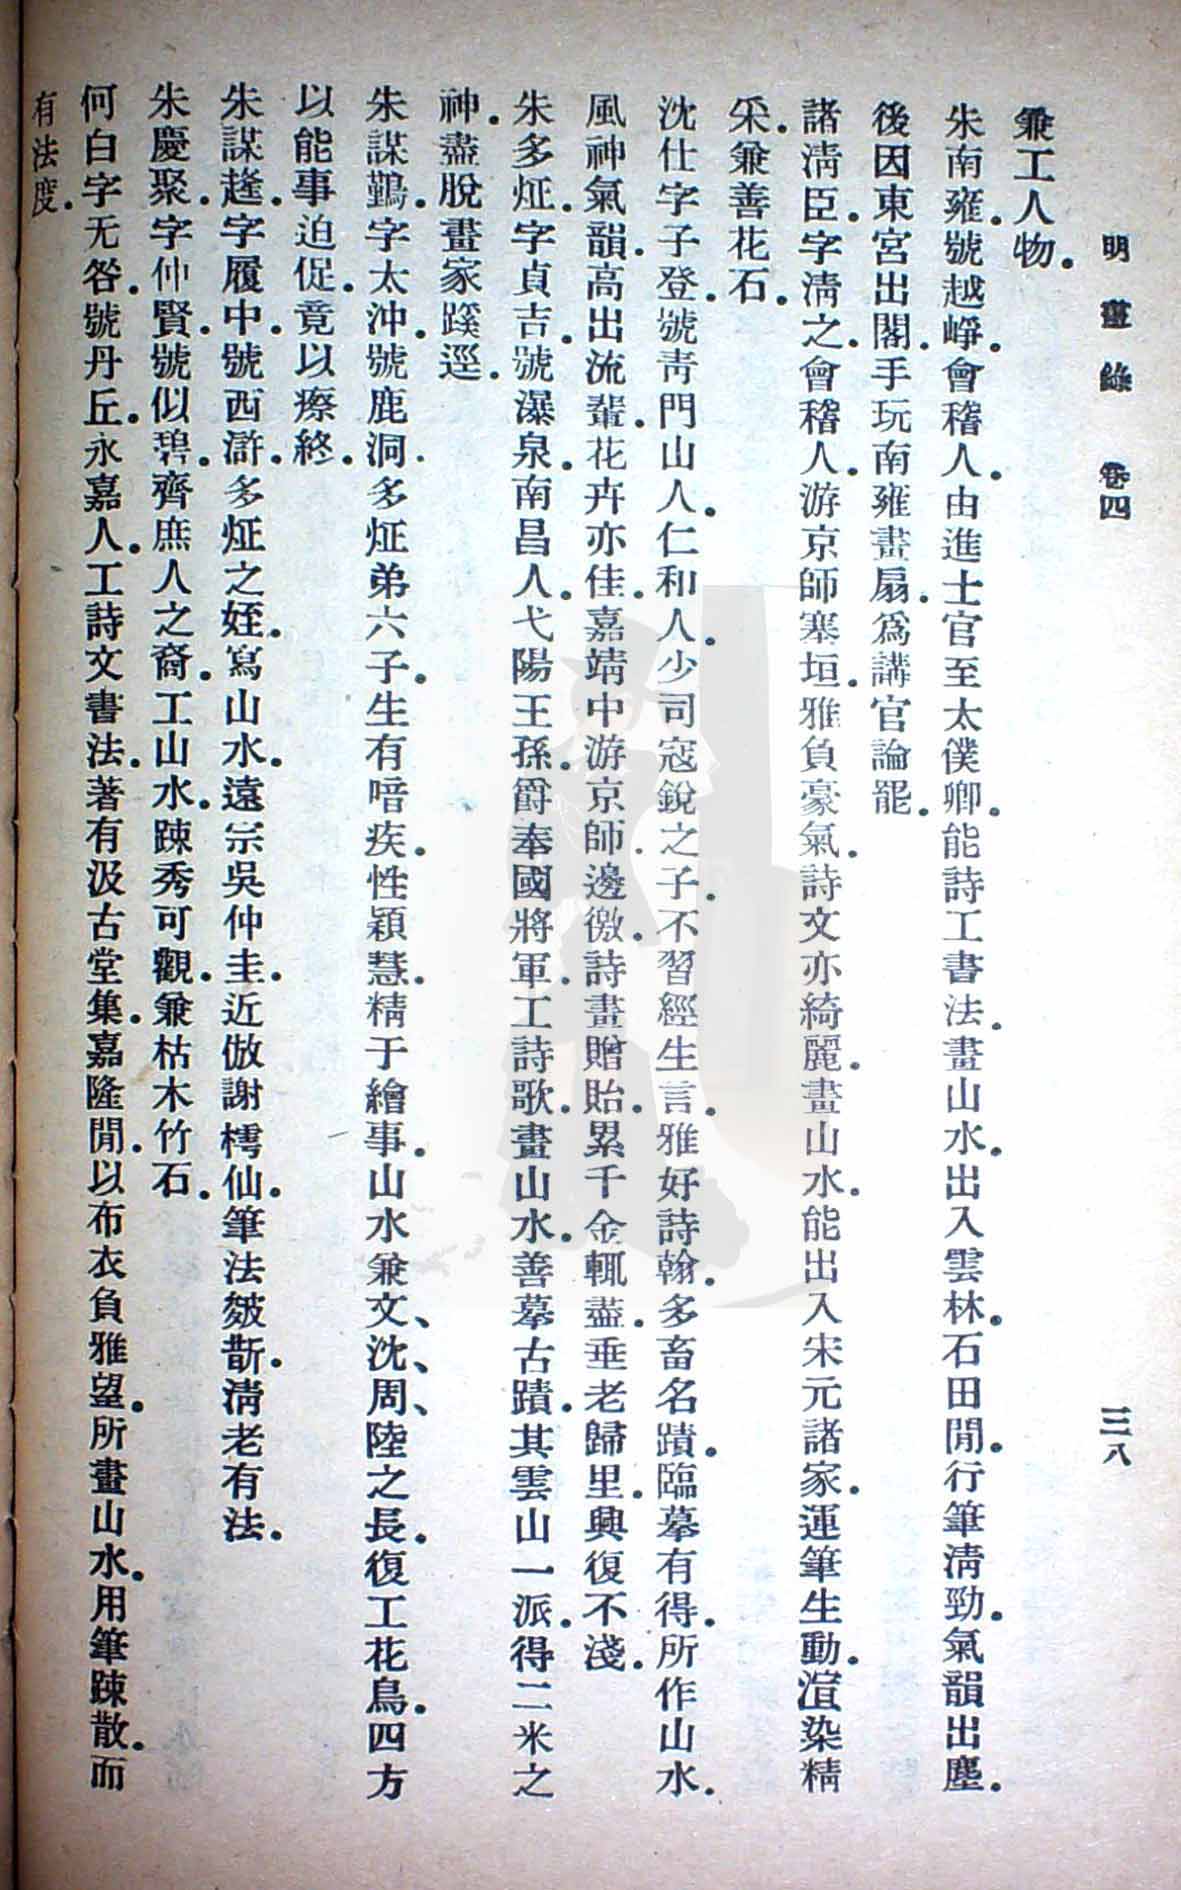 明畫錄 卷四 三八
兼工人物。
朱南雍。號越崢。會稽人。由進士官至太僕卿。能詩工書法。畫山水。出入雲林。石田閒。行筆淸勁。氣韻出塵。
後因東宮出閣。手玩南雍畫扇。爲講官論罷。
諸淸臣。字淸之。會稽人。游京師塞垣。雅負豪氣。詩文亦綺麗。畫山水。能出入宋元諸家。運筆生動。渲染精
采。兼善花石。
沈仕字子登。號靑門山人。仁和人。少司寇銳之子。不習經生言。雅好詩翰。多畜名蹟。臨摹有得。所作山水。
風神氣韻。高出流輩。花卉亦佳。嘉靖中游京師。邊徼。詩畫贈貽。累千金輒盡。垂老歸里。興復不淺。
朱多炡。字貞吉。號瀑泉。南昌人。弋陽王孫。爵奉國將軍。工詩歌。畫山水。善摹古蹟。其雲山一派。得二米之
神。盡脫畫家蹊逕。
朱謀鸐。字太沖。號鹿洞。多炡弟六子。生有喑疾。性穎慧。精于繪事。山水兼文、沈、周、陸之長。復工花鳥。四方
以能事迫促。竟以瘵終。
朱謀𡐤。字履中。號西滸。多炡之姪。寫山水。遠宗吳仲圭。近倣謝樗仙。筆法皴斮。淸老有法。
朱慶聚。字仲賢。號似碧。齊庶人之裔。工山水。踈秀可觀。兼枯木竹石。
何白字无咎。號丹丘。永嘉人。工詩文書法。著有汲古堂集。嘉隆閒。以布衣負雅望。所畫山水。用筆踈散。而
有法度。